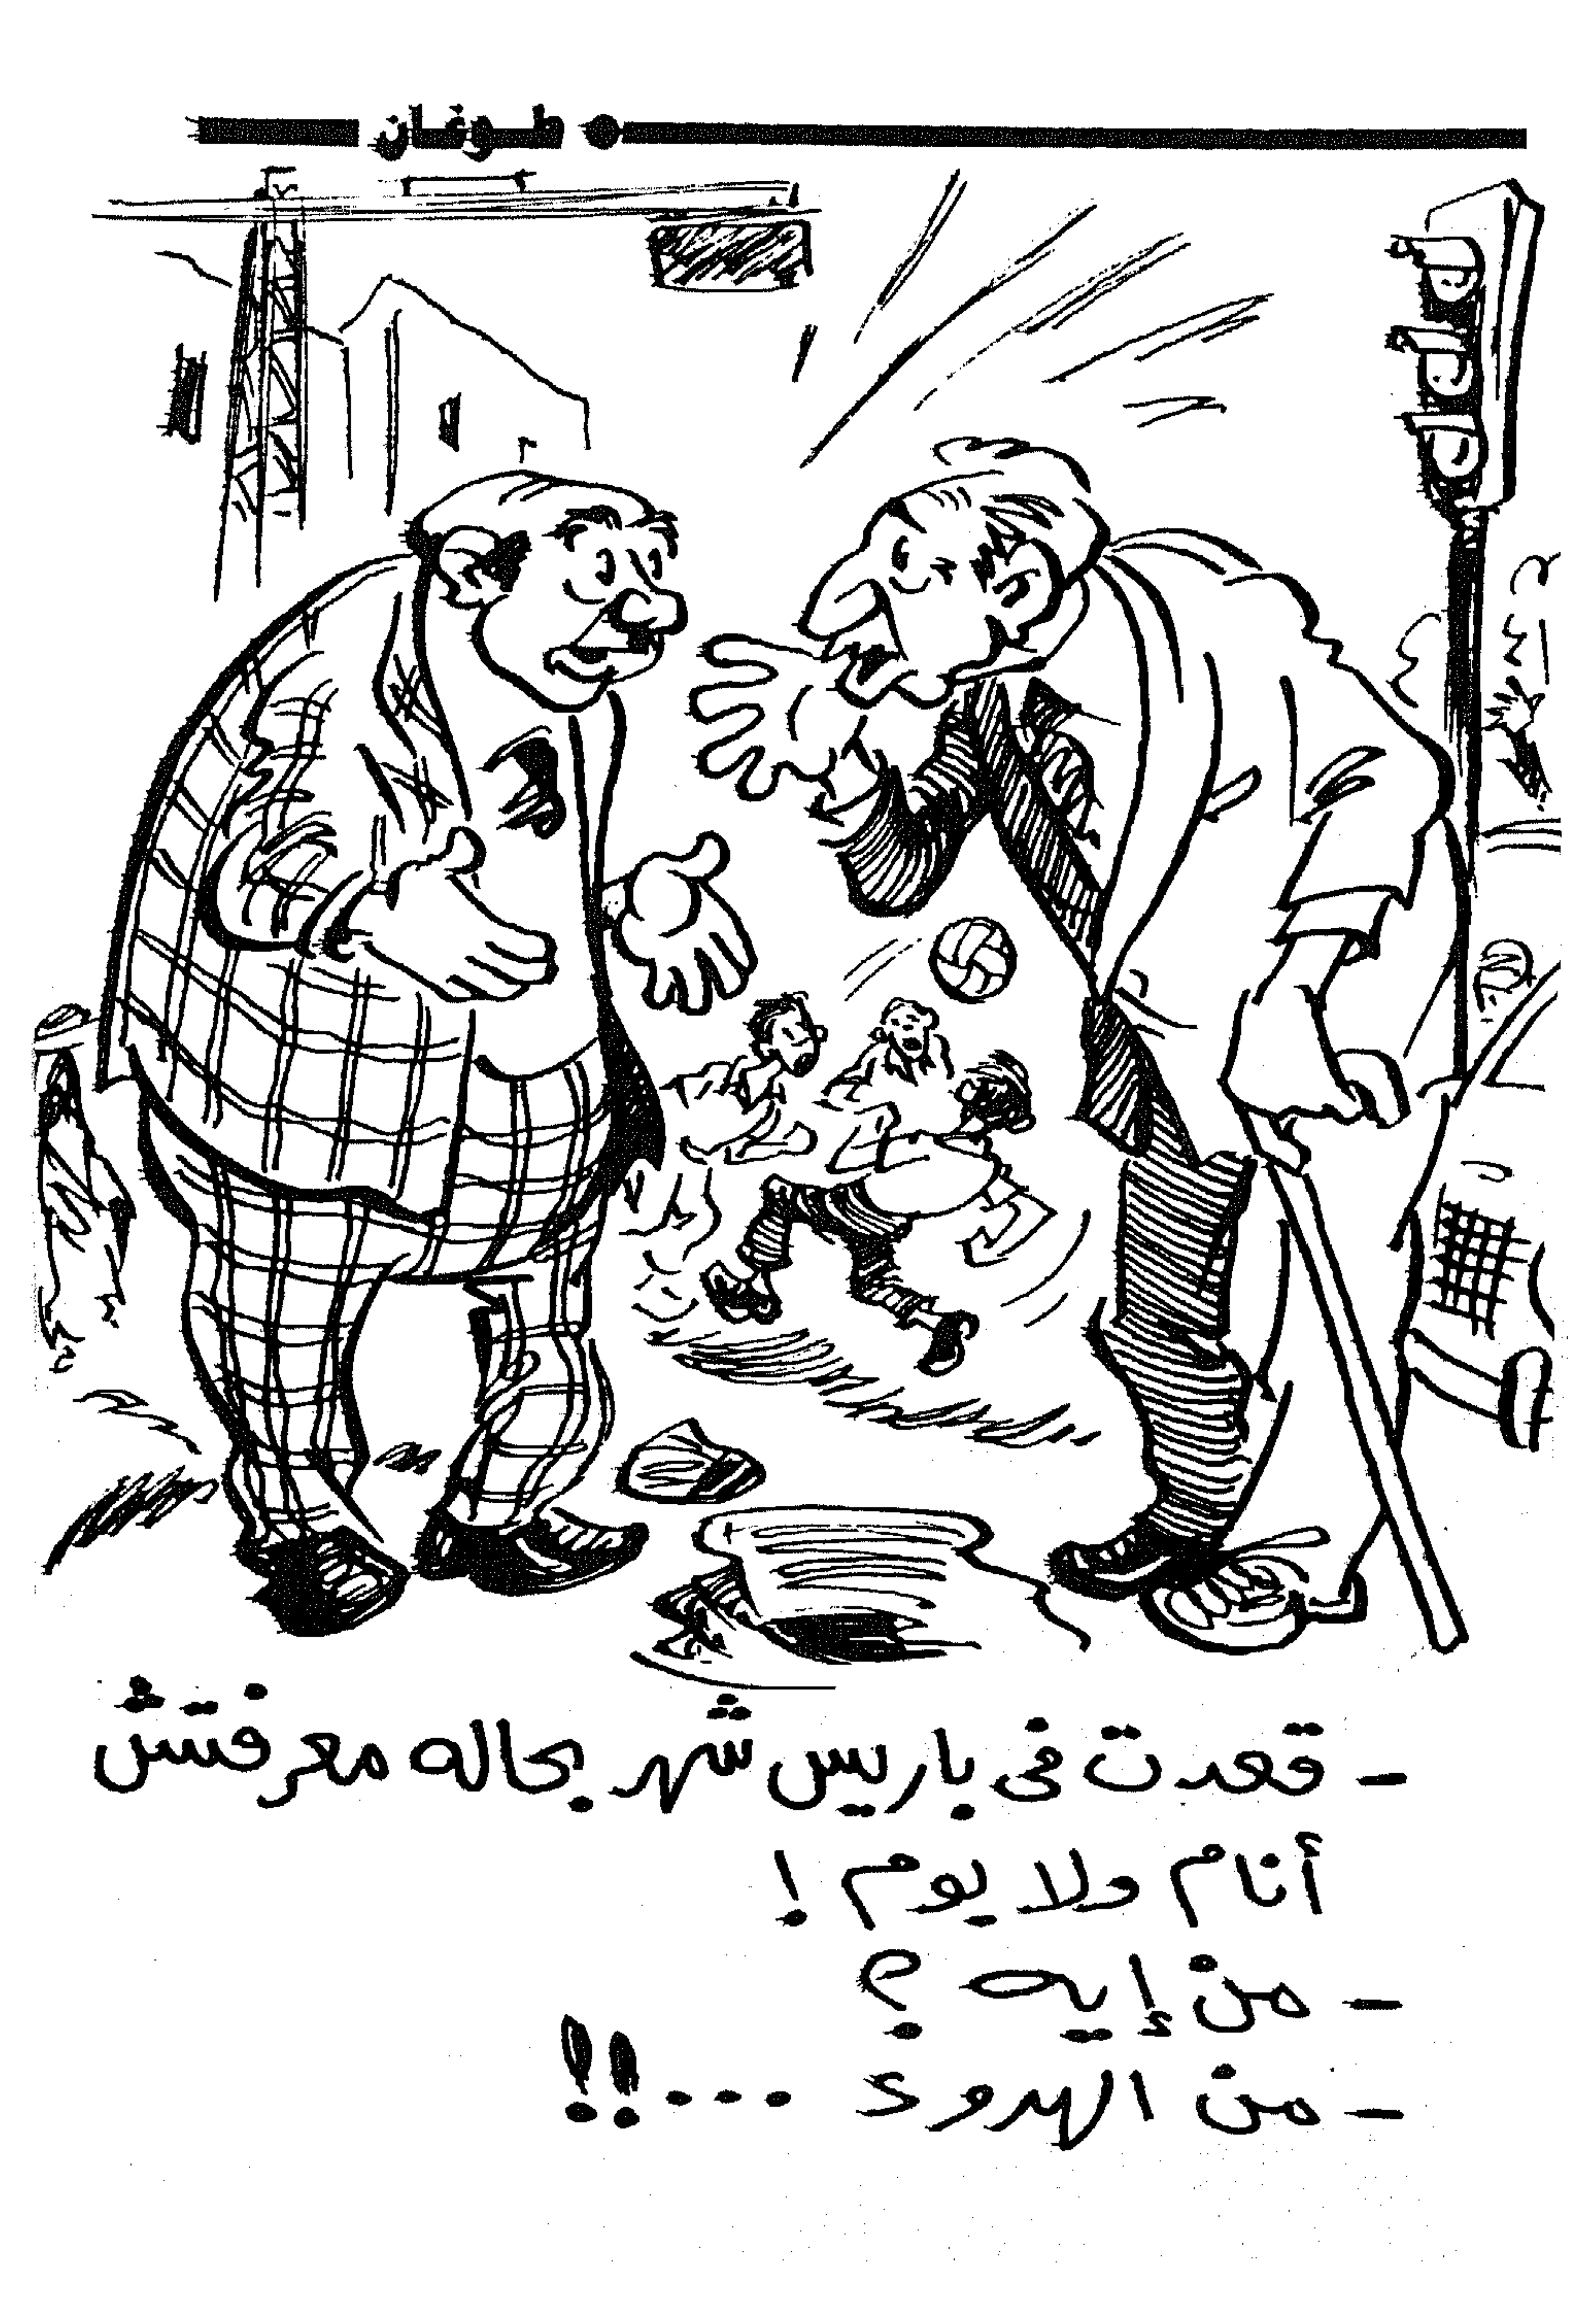 طوغان
- قعدت فى باريس شهر بحاله معرفتش
أنام ولا يوم !
- من إيه ؟
- من الهدوء ...!!